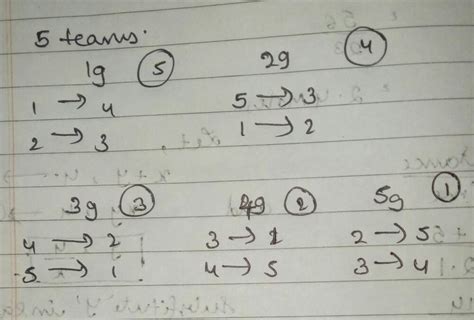 5 teams.
1g 5 2g 4
1 → 4 5 → 3
2 → 3 1 → 2
3g 3 4g 2 5g 1
4 → 2 3 → 1 2 → 5
5 → 1 4 → 5 3 → 4